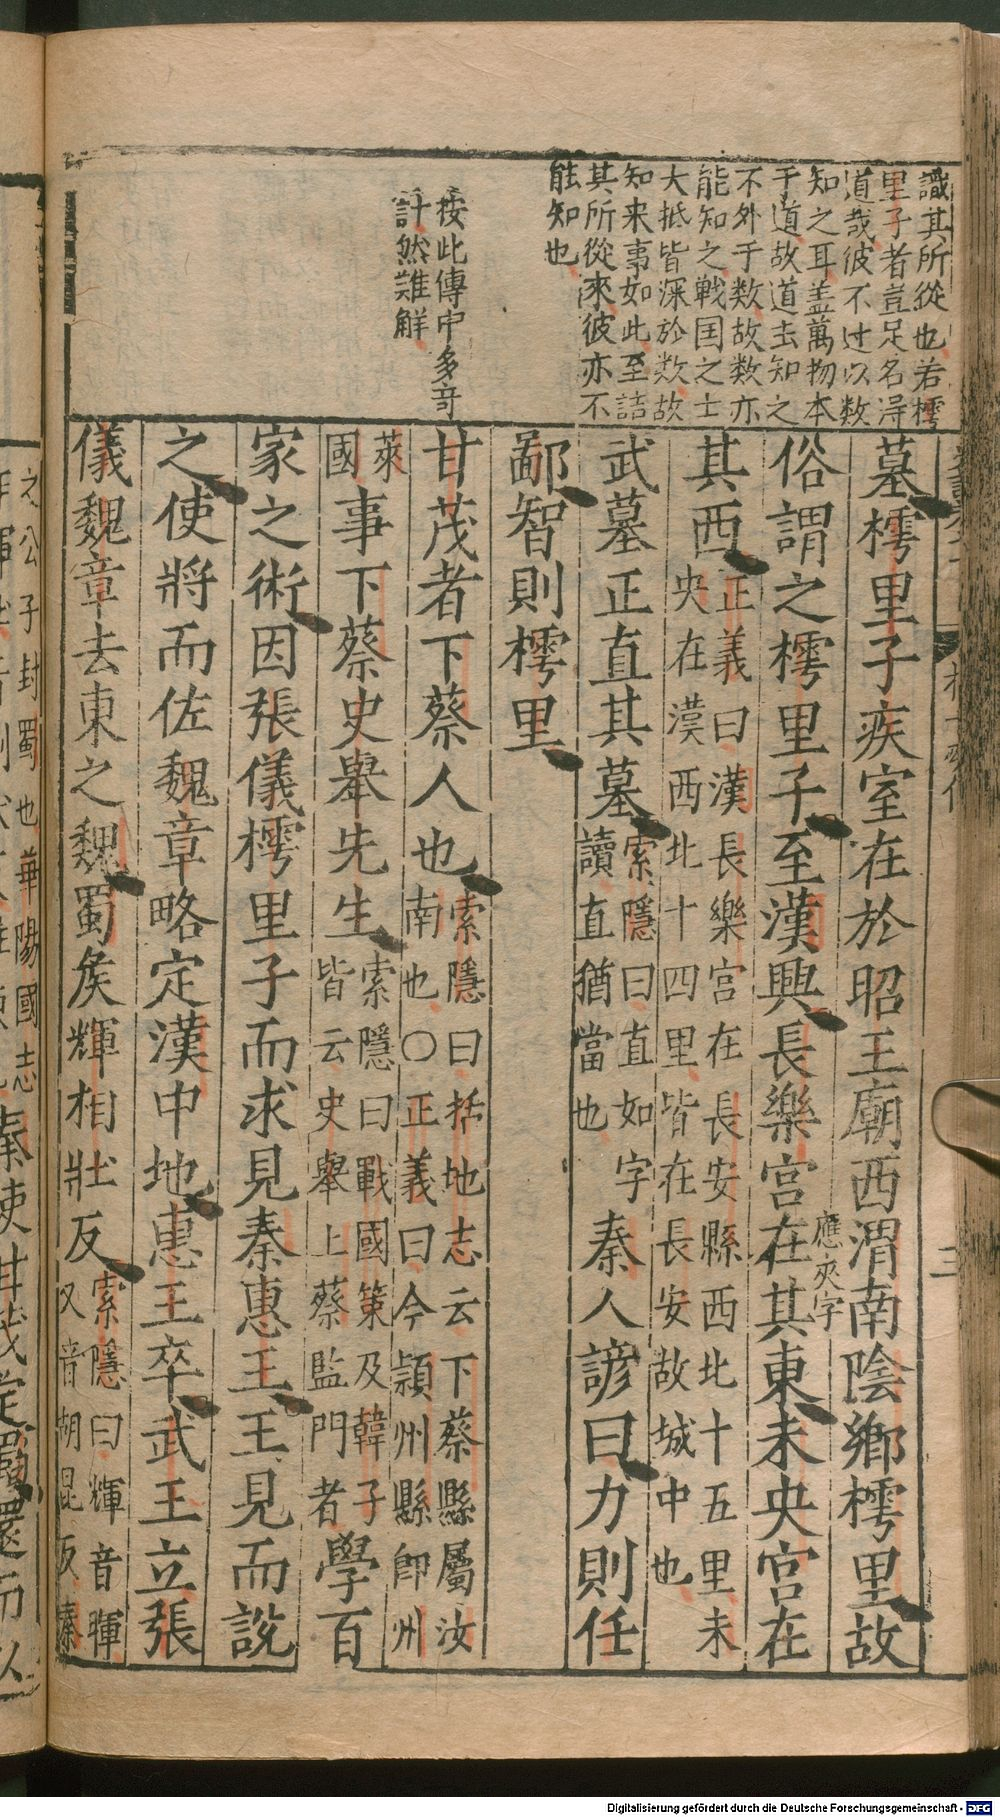 識其所從也若樗
里子者豈足名淂
道哉彼不过以数
知之耳盖萬物本
于道故道去知之
不外于数故数亦
能知之戰囯之士
大抵皆深於数故
知来事如此至詰
其所從來彼亦不
能知也
按此傳中多竒
計然難解
墓樗里子疾室在於昭王廟西渭南陰鄉樗里故
俗謂之樗里子至漢興長樂宮在其東未央宮在
應夾字
其西
正義曰漢長樂宮在長安縣西北十五里未
央在漢西北十四里皆在長安故城中也
武墓正直其墓
索隱曰直如字
讀直猶當也
秦人諺曰力則任
鄙智則樗里
甘茂者下蔡人也
索隱曰括地志云下蔡縣屬汝
南也〇正義曰今潁州縣即州
萊
國
事下蔡史舉先生
索隱曰戰國策及韓子
皆云史舉上蔡監門者
學百
家之術因張儀樗里子而求見秦惠王王見而說
之使將而佐魏章略定漢中地惠王卒武王立張
儀魏章去東之魏蜀矦輝相壯反
索隱曰輝音暉
又音胡昆反秦
之公子封蜀也華陽國志
秦使甘茂定蜀還而以
三
Digitalisierung gefördert durch die Deutsche Forschungsgemeinschaft - DFG